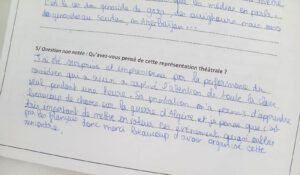 que les médias en parle
L'on le voit des génocide de gaza, les ouighours mais aussi
le génocide au Soudan, en Azerbaïdjan...
5/ Question non notée : Qu'avez-vous pensé de cette représentation théâtrale ?
J'ai été surprise et impressionnée par la performance du
comédien qui a réussi à captiver l'attention de toute la classe
seul, pendant une heure. Sa prestation m'a permis d'apprendre
beaucoup de choses sur la guerre d'Algérie et je pense que c'est
très important de mettre en lumière ces événements quasi oublier
par les français donc merci beaucoup d'avoir organisé cette
rencontre.